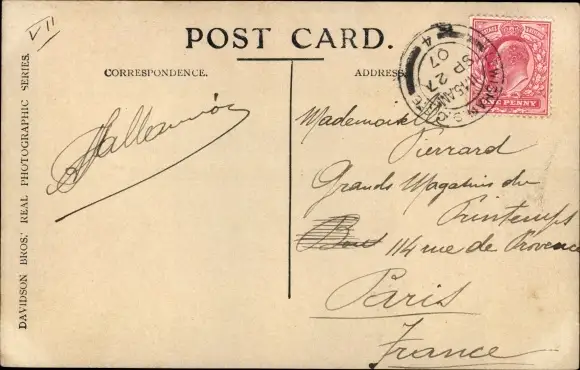 VII
POST CARD.
CORRESPONDENCE.
ADDRESS
Mademoiselle
Pierrard
Grands Magasins du
Printemps
114 rue de Provence
Paris
France
DAVIDSON BROS.' REAL PHOTOGRAPHIC SERIES.
SP 27
07
ONE PENNY